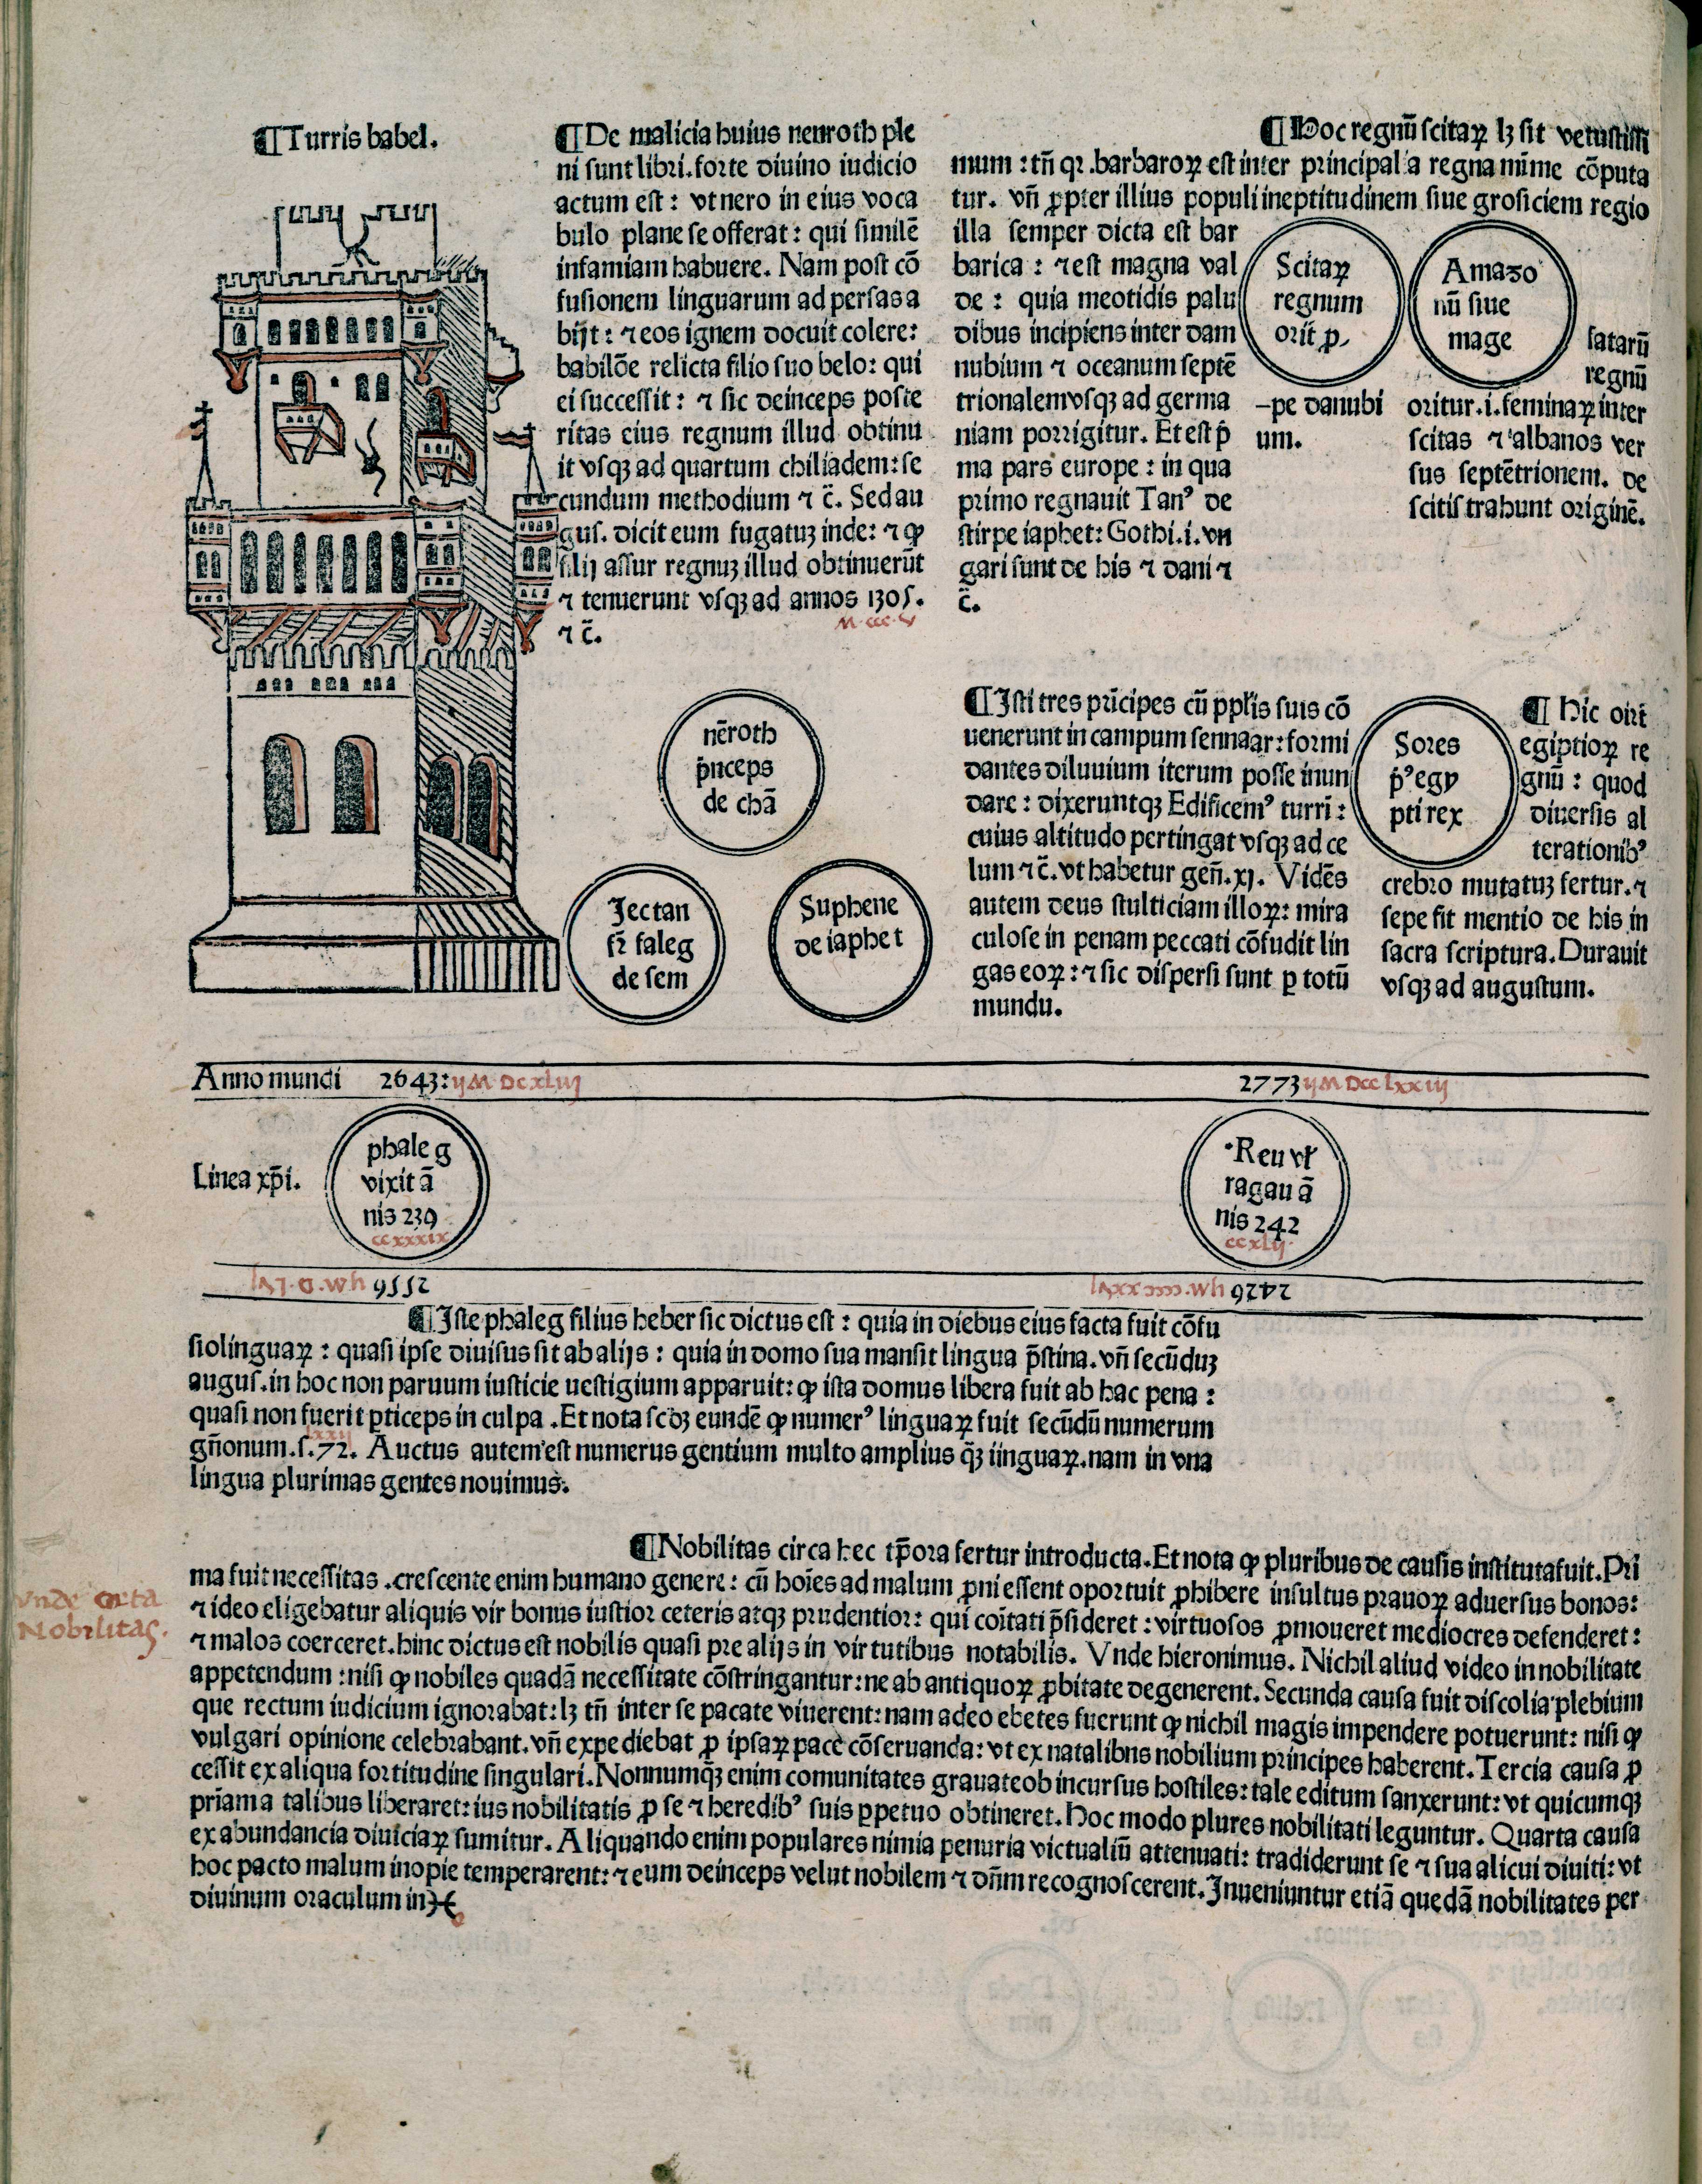 ¶Turris babel.
¶De malicia huius nenroth ple
ni sunt libri.forte diuino iudicio
actum est: vt nero in eius voca
bulo plane se offerat: qui similē
infamiam habuere. Nam post cō
fusionem linguarum ad persas a
bijt: ⁊ eos ignem docuit colere:
babilōe relicta filio suo belo: qui
ei successit: ⁊ sic deinceps poste
ritas eius regnum illud obtinu
it vsqꝫ ad quartum chiliadem: se
cundum methodium ⁊ c̄. Sed au
gus. dicit eum fugatuꝫ inde: ⁊ ꝙ
filij assur regnuꝫ illud obtinuerūt
⁊ tenuerunt vsqꝫ ad annos 1305.
M ccc v
⁊ c̄.
¶Hoc regnū scitaꝝ lꝫ sit vetustissi
mum: tn̄ qꝛ.barbaroꝝ est inter principalia regna mīme cōputa
tur. vn̄ ꝓpter illius populi ineptitudinem siue grosiciem regio
illa semper dicta est bar
barica: ⁊ est magna val
de: quia meotidis palu
dibus incipiens inter dam
nubium ⁊ oceanum septē
trionalem vsqꝫ ad germa
niam porrigitur. Et est p̄
ma pars europe: in qua
primo regnauit Tanꝰ de
stirpe iaphet: Gothi.i.vn
gari sunt de his ⁊ dani ⁊
c̄.
Scitaꝝ
regnum
orit̄ ꝓ
-pe danubi
um.
Amazo
nū siue
mage
satarū
regnū
oritur.i.feminaꝝ inter
scitas ⁊ albanos ver
sus septētrionem. de
scitis trahunt originē.
nēroth
p̄nceps
de chā
Jectan
fr̄ faleg
de sem
Suphene
de iaphet
¶Isti tres prīcipes cū pplīs suis cō
uenerunt in campum sennaar: formi
dantes diluuium iterum posse inun
dare: dixeruntqꝫ Edificemꝰ turrī:
cuius altitudo pertingat vsqꝫ ad ce
lum ⁊ c̄. vt habetur gen̄.xj. Vidēs
autem deus stulticiam illoꝝ: mira
culose in penam peccati cōfudit lin
gas eoꝝ: ⁊ sic dispersi sunt ꝑ totū
mundu.
Sores
p̄ꝰ egy
pti rex
¶ Hic orit̄
egiptioꝝ re
gnū: quod
diuersis al
terationibꝰ
crebro mutatuꝫ fertur. ⁊
sepe fit mentio de his in
sacra scriptura. Durauit
vsqꝫ ad augustum.
Anno mundi 2643: ijM DCxliij 2773 ijM DCC lxxiij
Linea xp̄i.
phaleg
vixit ā
nis 239
ccxxxix
Reu vł
ragau ā
nis 242
ccxlij
2556 2426
¶Iste phaleg filius heber sic dictus est: quia in diebus eius facta fuit cōfu
sio linguaꝝ: quasi ipse diuisus sit ab alijs: quia in domo sua mansit lingua p̄stina. vn̄ secūduꝫ
augus.in hoc non paruum iusticie uestigium apparuit: ꝙ ista domus libera fuit ab hac pena:
quasi non fuerit ꝑticeps in culpa. Et nota scdꝫ eundē ꝙ numerꝰ linguaꝝ fuit secūdū numerum
lxxij
gn̄onum.s.72. Auctus autem est numerus gentium multo amplius qꝫ̄ linguaꝝ.nam in vna
lingua plurimas gentes nouimus.
¶Nobilitas circa hec tp̄ora fertur introducta. Et nota ꝙ pluribus de causis instituta fuit. Pri
ma fuit necessitas.crescente enim humano genere: cū hoīes ad malum ꝓni essent oportuit ꝓhibere insultus prauoꝝ aduersus bonos:
⁊ ideo eligebatur aliquis vir bonus iustior ceteris atqꝫ prudentior: qui coītati p̄sideret: virtuosos ꝓmoueret mediocres defenderet:
⁊ malos coerceret.hinc dictus est nobilis quasi pre alijs in virtutibus notabilis. Vnde hieronimus. Nichil aliud video in nobilitate
appetendum: nisi ꝙ nobiles quadā necessitate cōstringantur: ne ab antiquoꝝ ꝓbitate degenerent. Secunda causa fuit discolia plebium
que rectum iudicium ignorabat: lꝫ tn̄ inter se pacate viuerent: nam adeo ebetes fuerunt ꝙ nichil magis impendere potuerunt: nisi ꝙ
vulgari opinione celebrabant. vn̄ expediebat ꝓ ipsaꝝ pace cōseruanda: vt ex natalibus nobilium principes haberent. Tercia causa ꝓ
cessit ex aliqua fortitudine singulari. Nonnumqꝫ̄ enim comunitates grauate ob incursus hostiles: tale editum sanxerunt: vt quicumqꝫ
priam a talibus liberaret: ius nobilitatis ꝓ se ⁊ heredibꝰ suis ꝑpetuo obtineret. Hoc modo plures nobilitati leguntur. Quarta causa
ex abundancia diuiciaꝝ sumitur. Aliquando enim populares nimia penuria victualiū attenuati: tradiderunt se ⁊ sua alicui diuiti: vt
hoc pacto malum inopie temperarent: ⁊ eum deinceps velut nobilem ⁊ dn̄m recognoscerent. Inueniuntur etiā quedā nobilitates per
diuinum oraculum in
Vnde orta
Nobilitas.